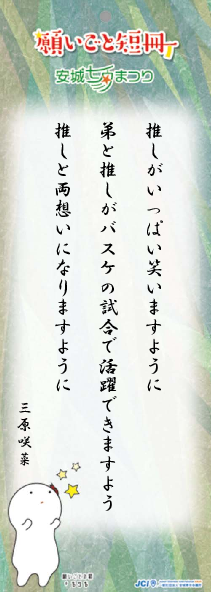 願いごと短冊
安城七夕まつり
推しがいっぱい笑いますように
弟と推しがバスケの試合で活躍できますよう
推しと両想いになりますように
三原咲菜
JCI